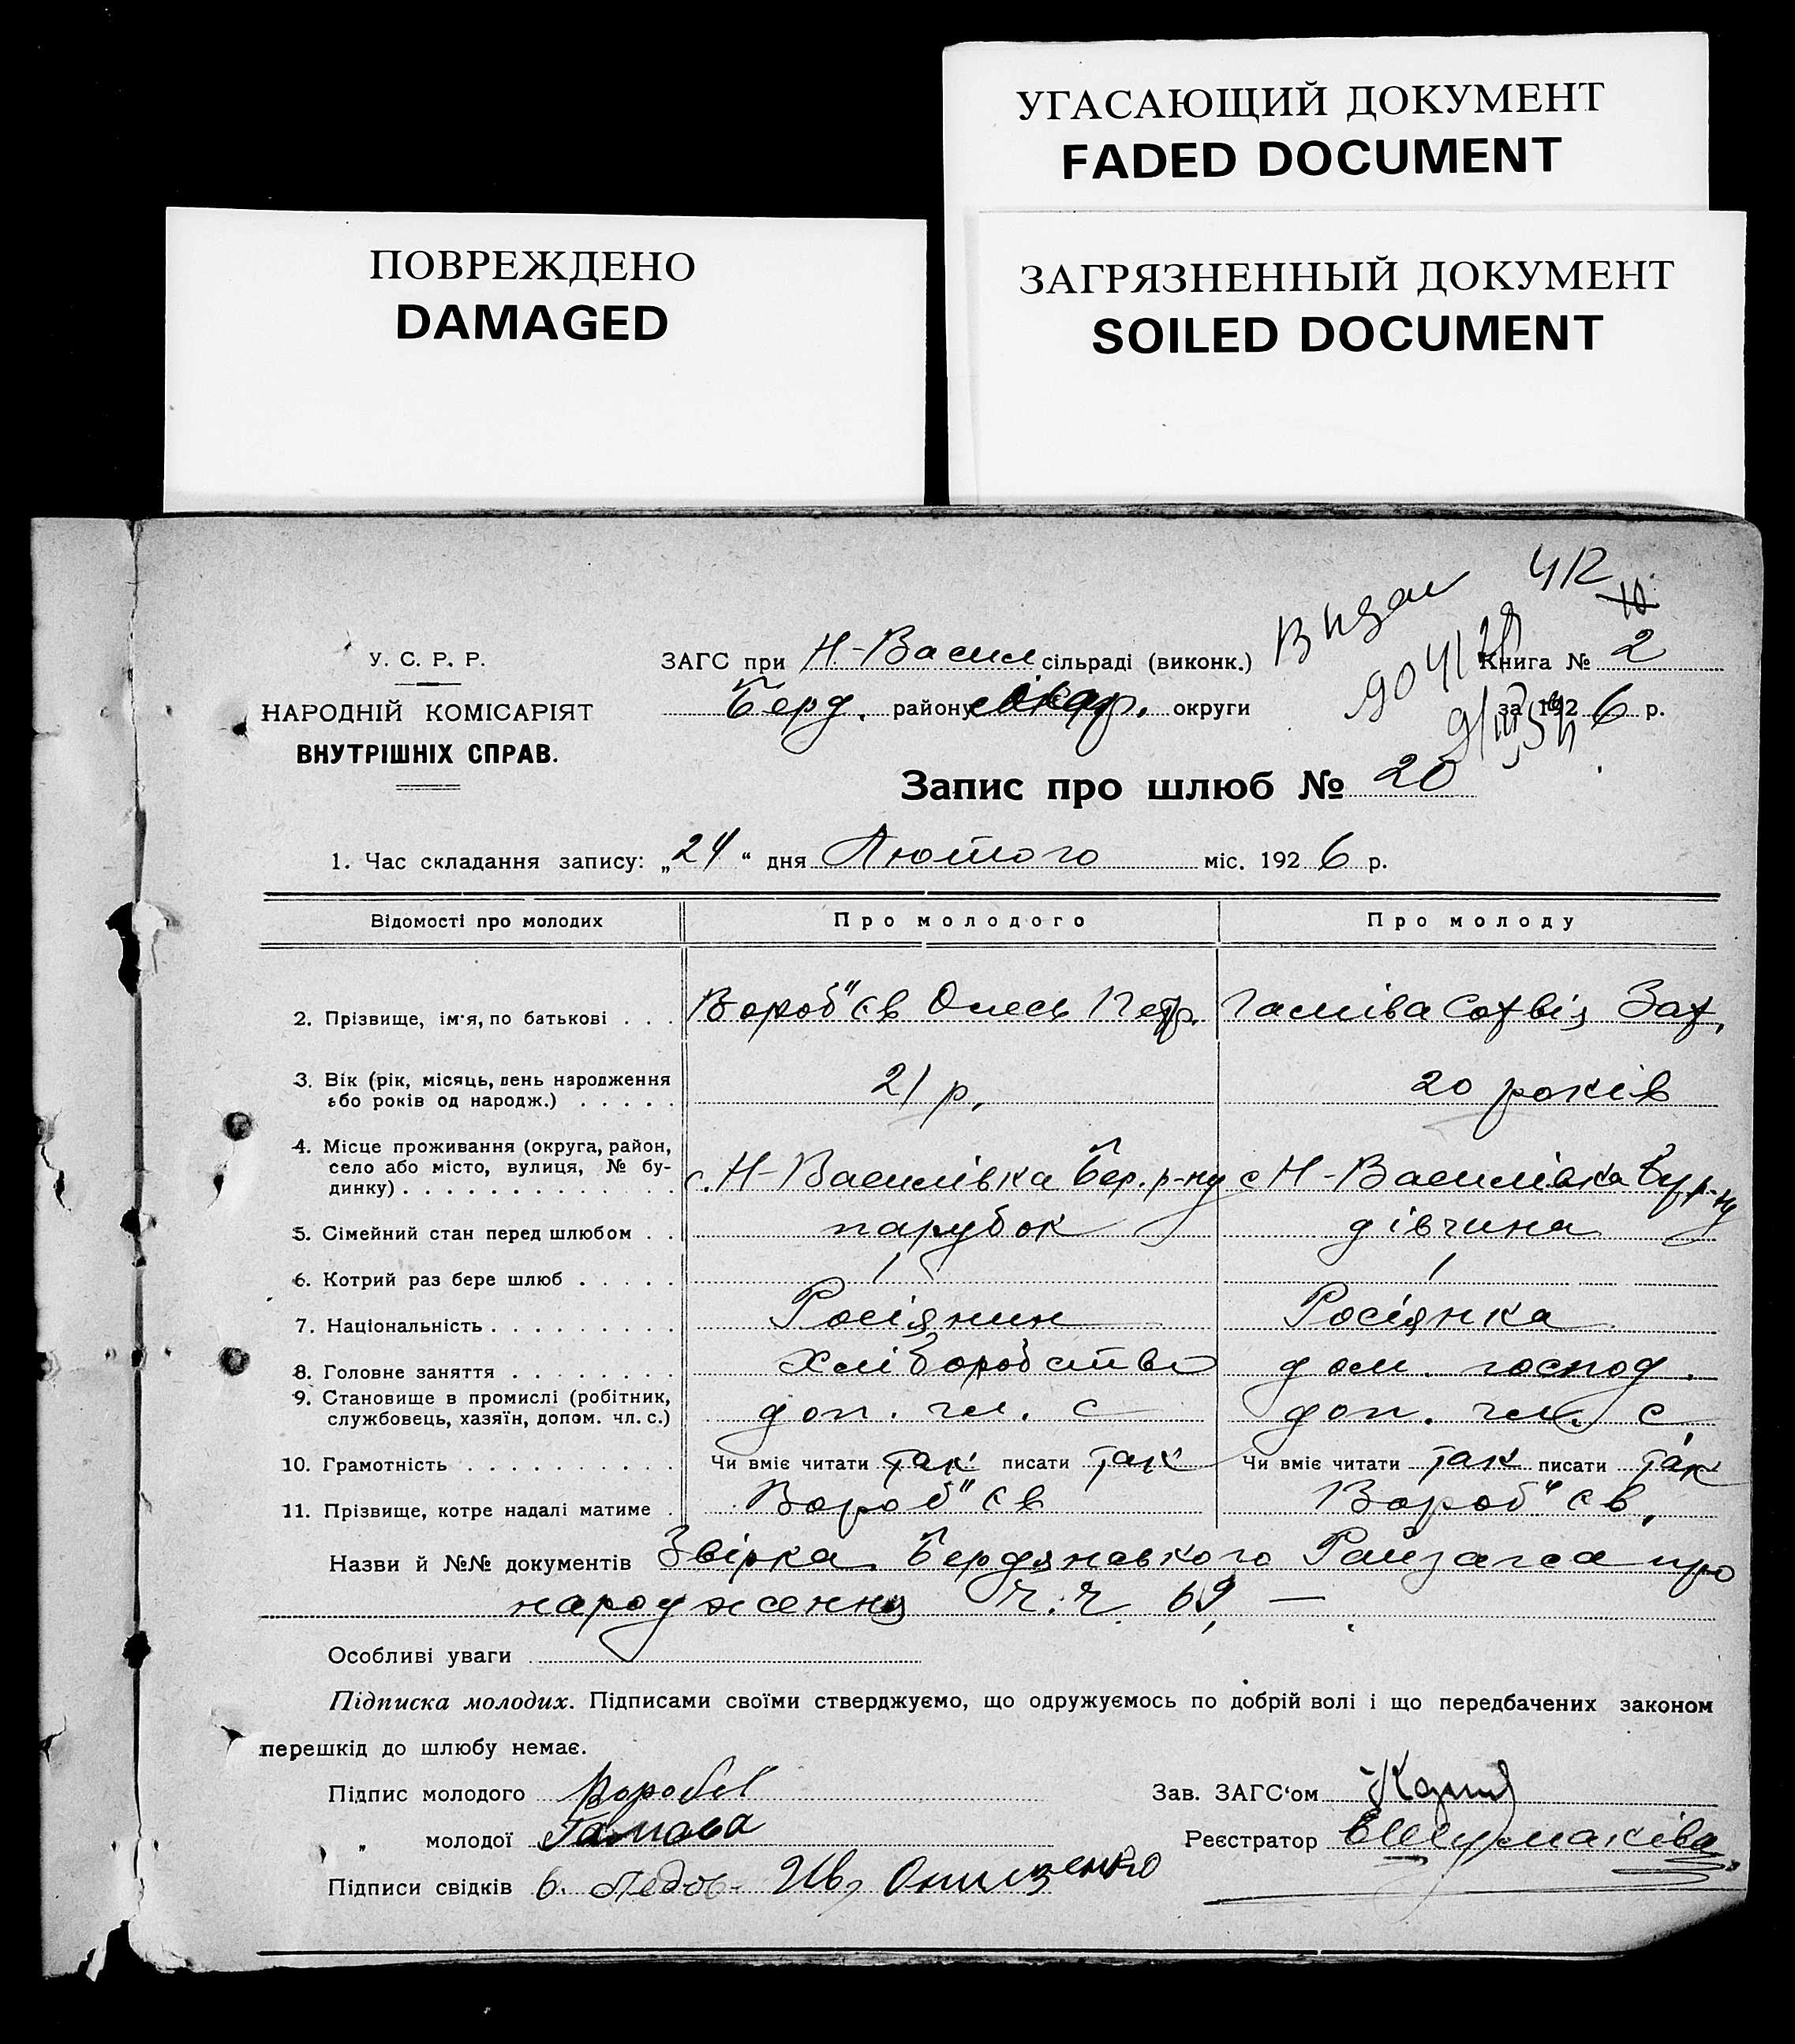 УГАСАЮЩИЙ ДОКУМЕНТ
FADED DOCUMENT
ПОВРЕЖДЕНО
DAMAGED
ЗАГРЯЗНЕННЫЙ ДОКУМЕНТ
SOILED DOCUMENT
412
У. С. Р. Р.
НАРОДНІЙ КОМІСАРІЯТ
ВНУТРІШНІХ СПРАВ.
ЗАГС при Н-Васил сільраді (виконк.)
Книга № 2
Берд. району округи
за 1926 р.
Запис про шлюб № 20
1. Час складання запису: „24“ дня Лютого міс. 1926 р.
Відомості про молодих Про молодого Про молоду
2. Прізвище, ім'я, по батькові . . . Вороб"єв Олесь Петр.
3. Вік (рік, місяць, день народження або років од народж.) . . . . . 21 р. 20 років
4. Місце проживання (округа, район, село або місто, вулиця, № будинку) . . . с. Н-Василівка Бер. р-ну с Н-Василівка Бер р-ну
5. Сімейний стан перед шлюбом . . парубок дівчина
6. Котрий раз бере шлюб . . . . . 1 1
7. Національність . . . . . . . . . Росіянин Росіянка
8. Головне заняття . . . . . . . . Хліборобство дом. господ.
9. Становище в промислі (робітник, службовець, хазяїн, допом. чл. с.) доп. чл. с доп. чл. с
10. Грамотність . . . . . . . . . . . Чи вміє читати так писати так Чи вміє читати так писати так
11. Прізвище, котре надалі матиме . Вороб"єв Вороб"єв.
Назви й №№ документів Звірка Бердянського Райзагса про
народження Ч.Ч. 69, —
Особливі уваги
Підписка молодих. Підписами своїми стверджуємо, що одружуємось по добрій волі і що передбачених законом
перешкід до шлюбу немає.
Підпис молодого Воробьев
Зав. ЗАГС'ом
„ молодої
Реєстратор ЕШумаківа
Підписи свідків